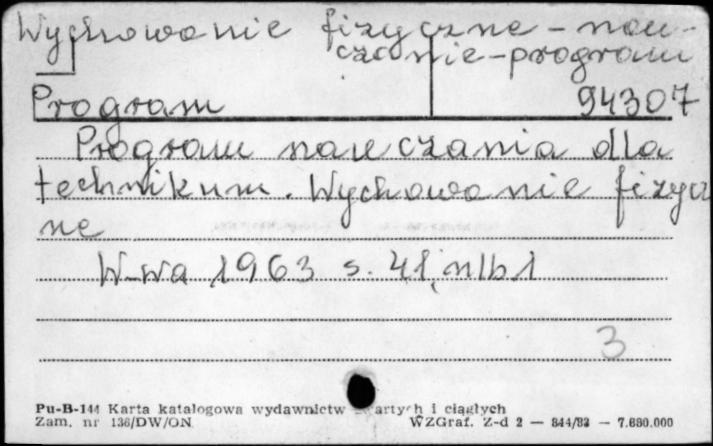 Wychowanie fizyczne - nau-
czanie - program
Program 94307
Program nauczania dla
technikum. Wychowanie fizycz
ne
W-wa 1963 s. 41, nlb 1
3
Pu-B-144 Karta katalogowa wydawnictw zwartych i ciągłych
Zam. nr 136/DW/ON WZGraf. Z-d 2 — 844/82 — 7.680.000